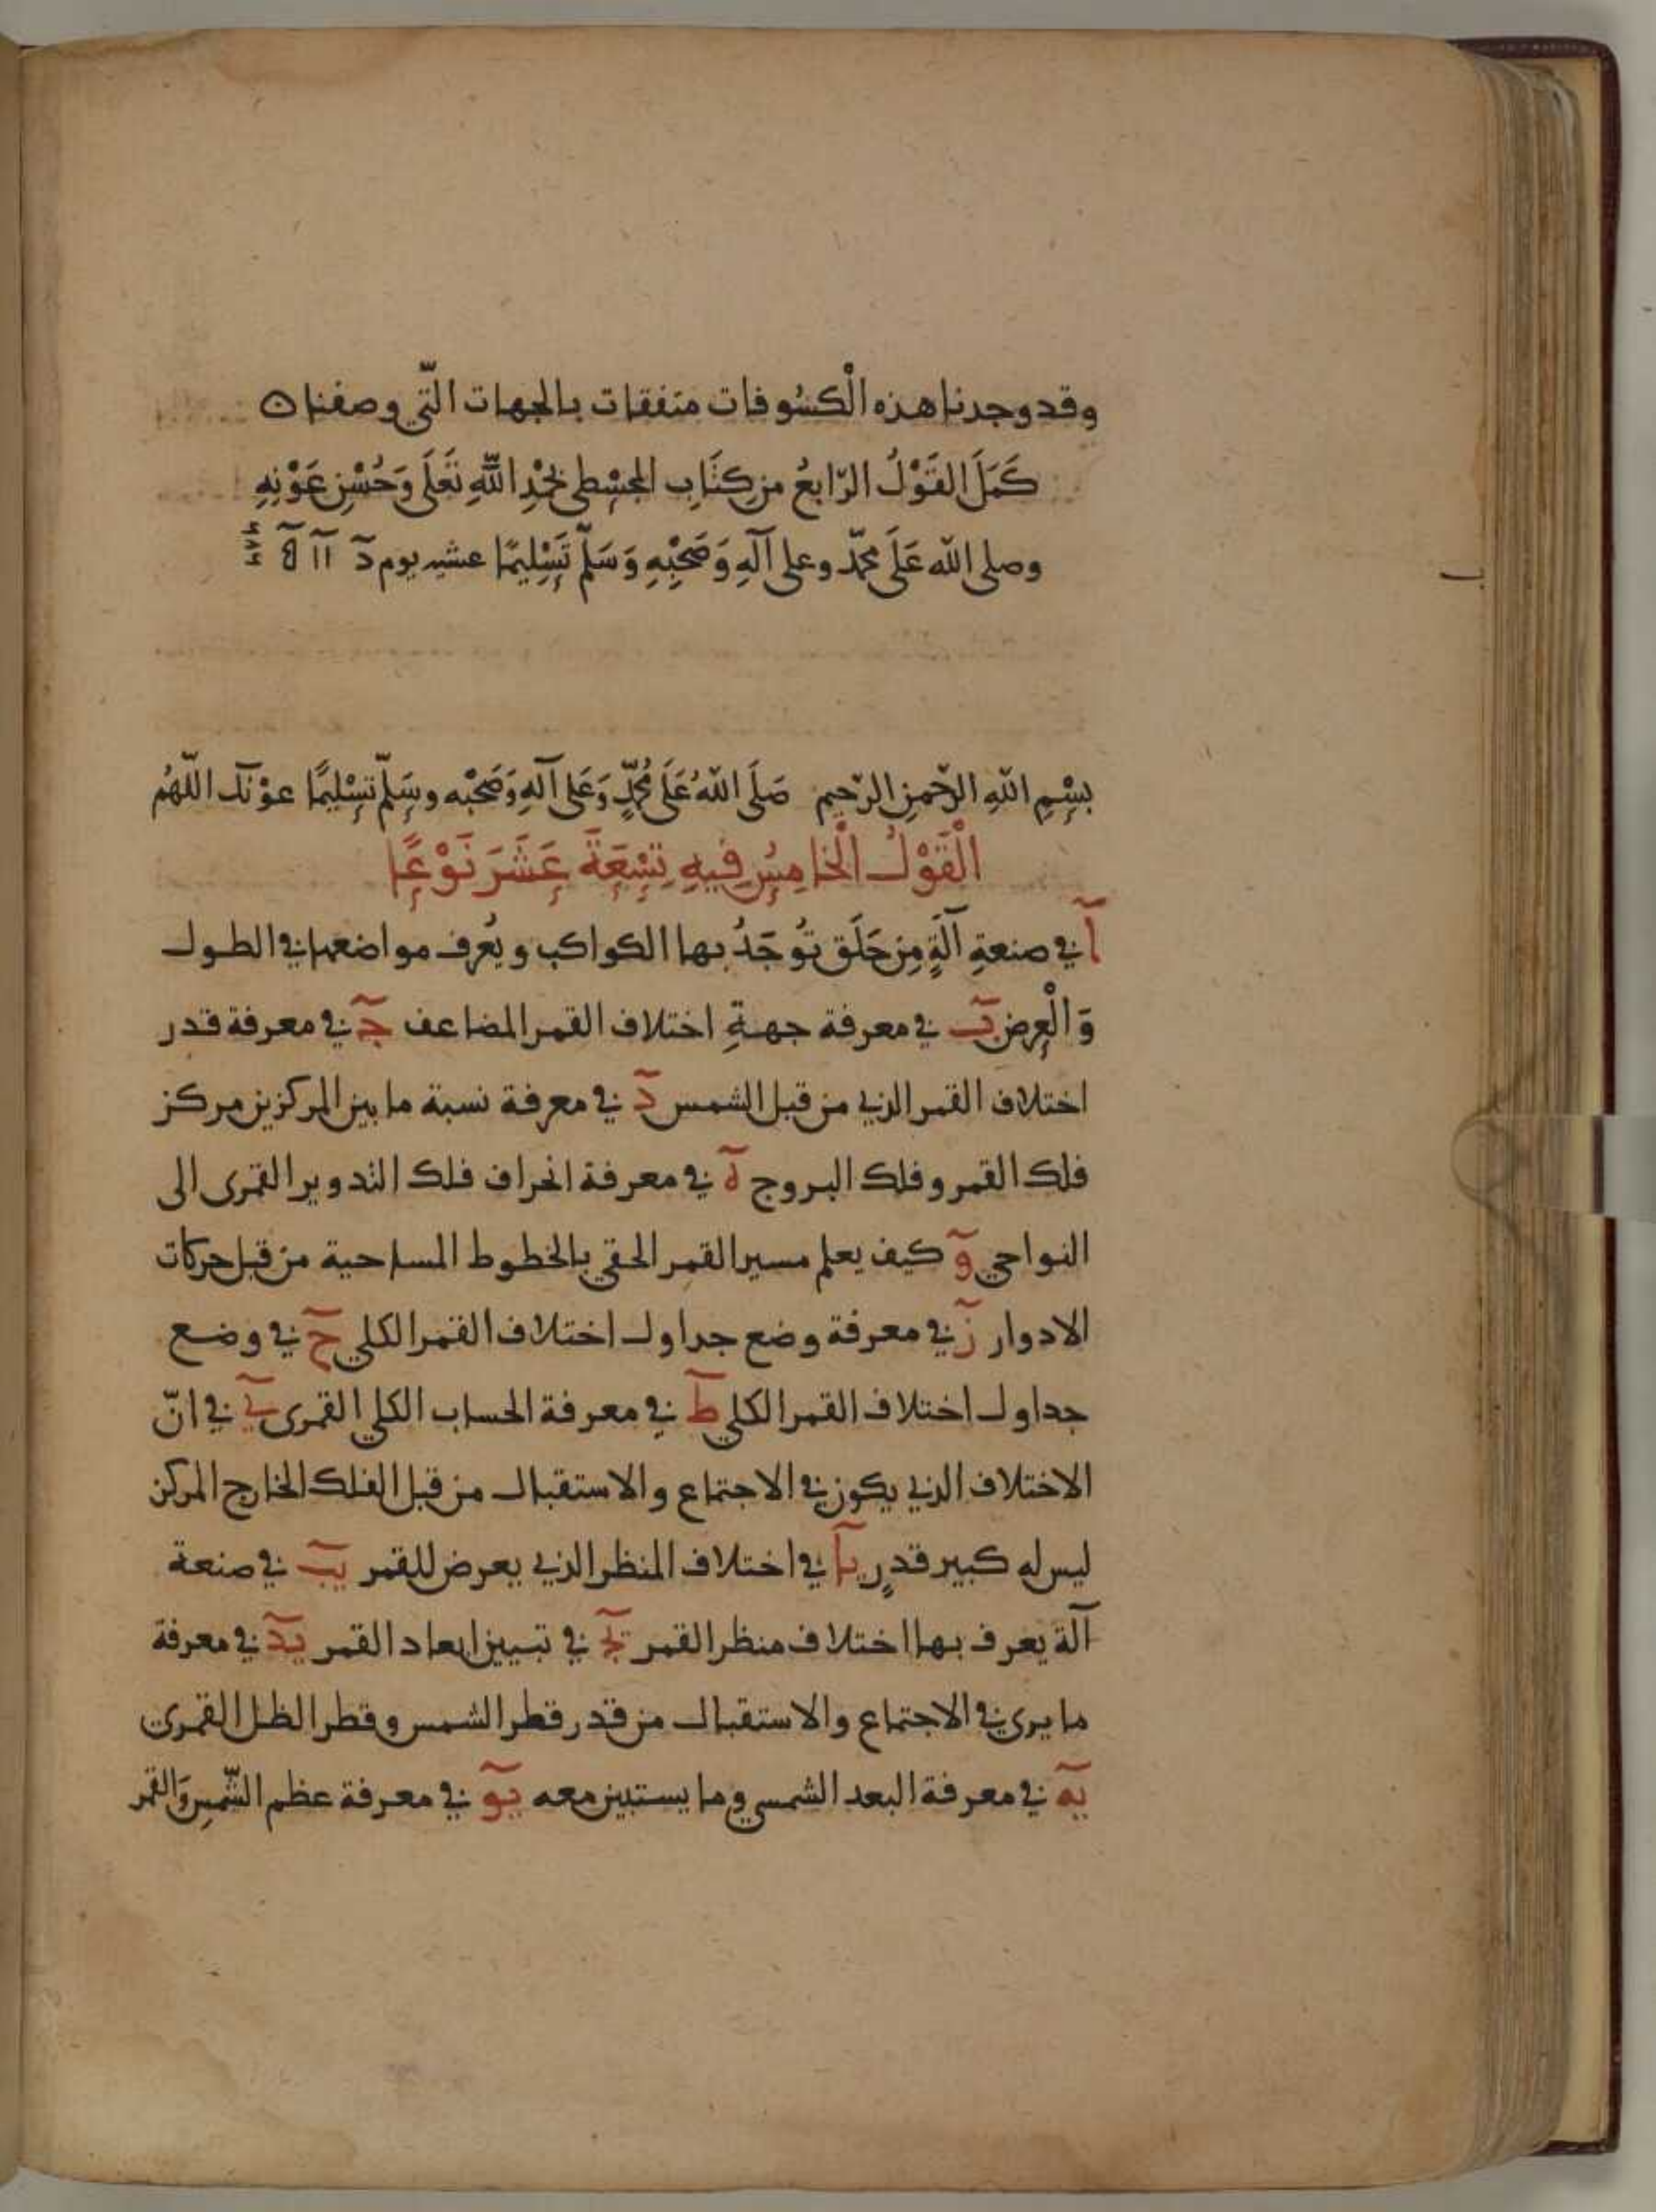 وقد وجدنا هذه الْكسُوفات متفقات بالجهات الّتي وصفنا ه
كَمَلَ القَوْلُ الرّابعُ من كِتَابِ المجسْطي بحَمْدِ اللّهِ تَعَلَى وَحُسْنِ عَوْنِهِ
وصلى اللّه عَلَى محمّد وعلى آلهِ وَصَحْبِهِ وَسَلّم تَسْلِيمًا عشيه يوم دَ
بسْمِ اللّهِ الرّحْمنِ الرّحيم صَلَى اللّهُ عَلَى مُحَمّدٍ وَعَلى آلهِ وَصَحْبه وسَلّم تسْليمًا عوْنَك اللّهُم
الْقَوْلُ الْخامِسُ فِيهِ تِسْعَةَ عَشَرَ نَوْعًا
آ في صنعةِ آلَةٍ مِن حَلَق تُوجَدُ بها الكواكب ويُعرف مواضعها في الطول
وَالْعرض بَ في معرفة جهةِ اختلاف القمر المضاعف جَ في معرفة قدر
اختلاف القمر الذي من قبل الشمس دَ في معرفة نسبة ما بين المركزين مركز
فلك القمر وفلك البروج هَ في معرفة انحراف فلك التدوير القمرى الى
النواحي وَ كيف يعلم مسير القمر الحقي بالخطوط المساحية من قبل حركات
الادوار زَ في معرفة وضع جداول اختلاف القمر الكلي حَ في وضع
جداول اختلاف القمر الكلي طَ في معرفة الحساب الكلي القمرى يَ في انّ
الاختلاف الذي يكون في الاجتماع والاستقبال من قبل الفلك الخارج المركز
ليس له كبير قدرٍ يآ في اختلاف المنظر الذي يعرض للقمر يبَ في صنعة
آلة يعرف بها اختلاف منظر القمر يجَ في تبيين ابعاد القمر يدَ في معرفة
ما يرى في الاجتماع والاستقبال من قدر قطر الشمس وقطر الظل القمرى
يهَ في معرفة البعد الشمسي وما يستبين معه يوَ في معرفة عظم الشّمسِ وَالقمر